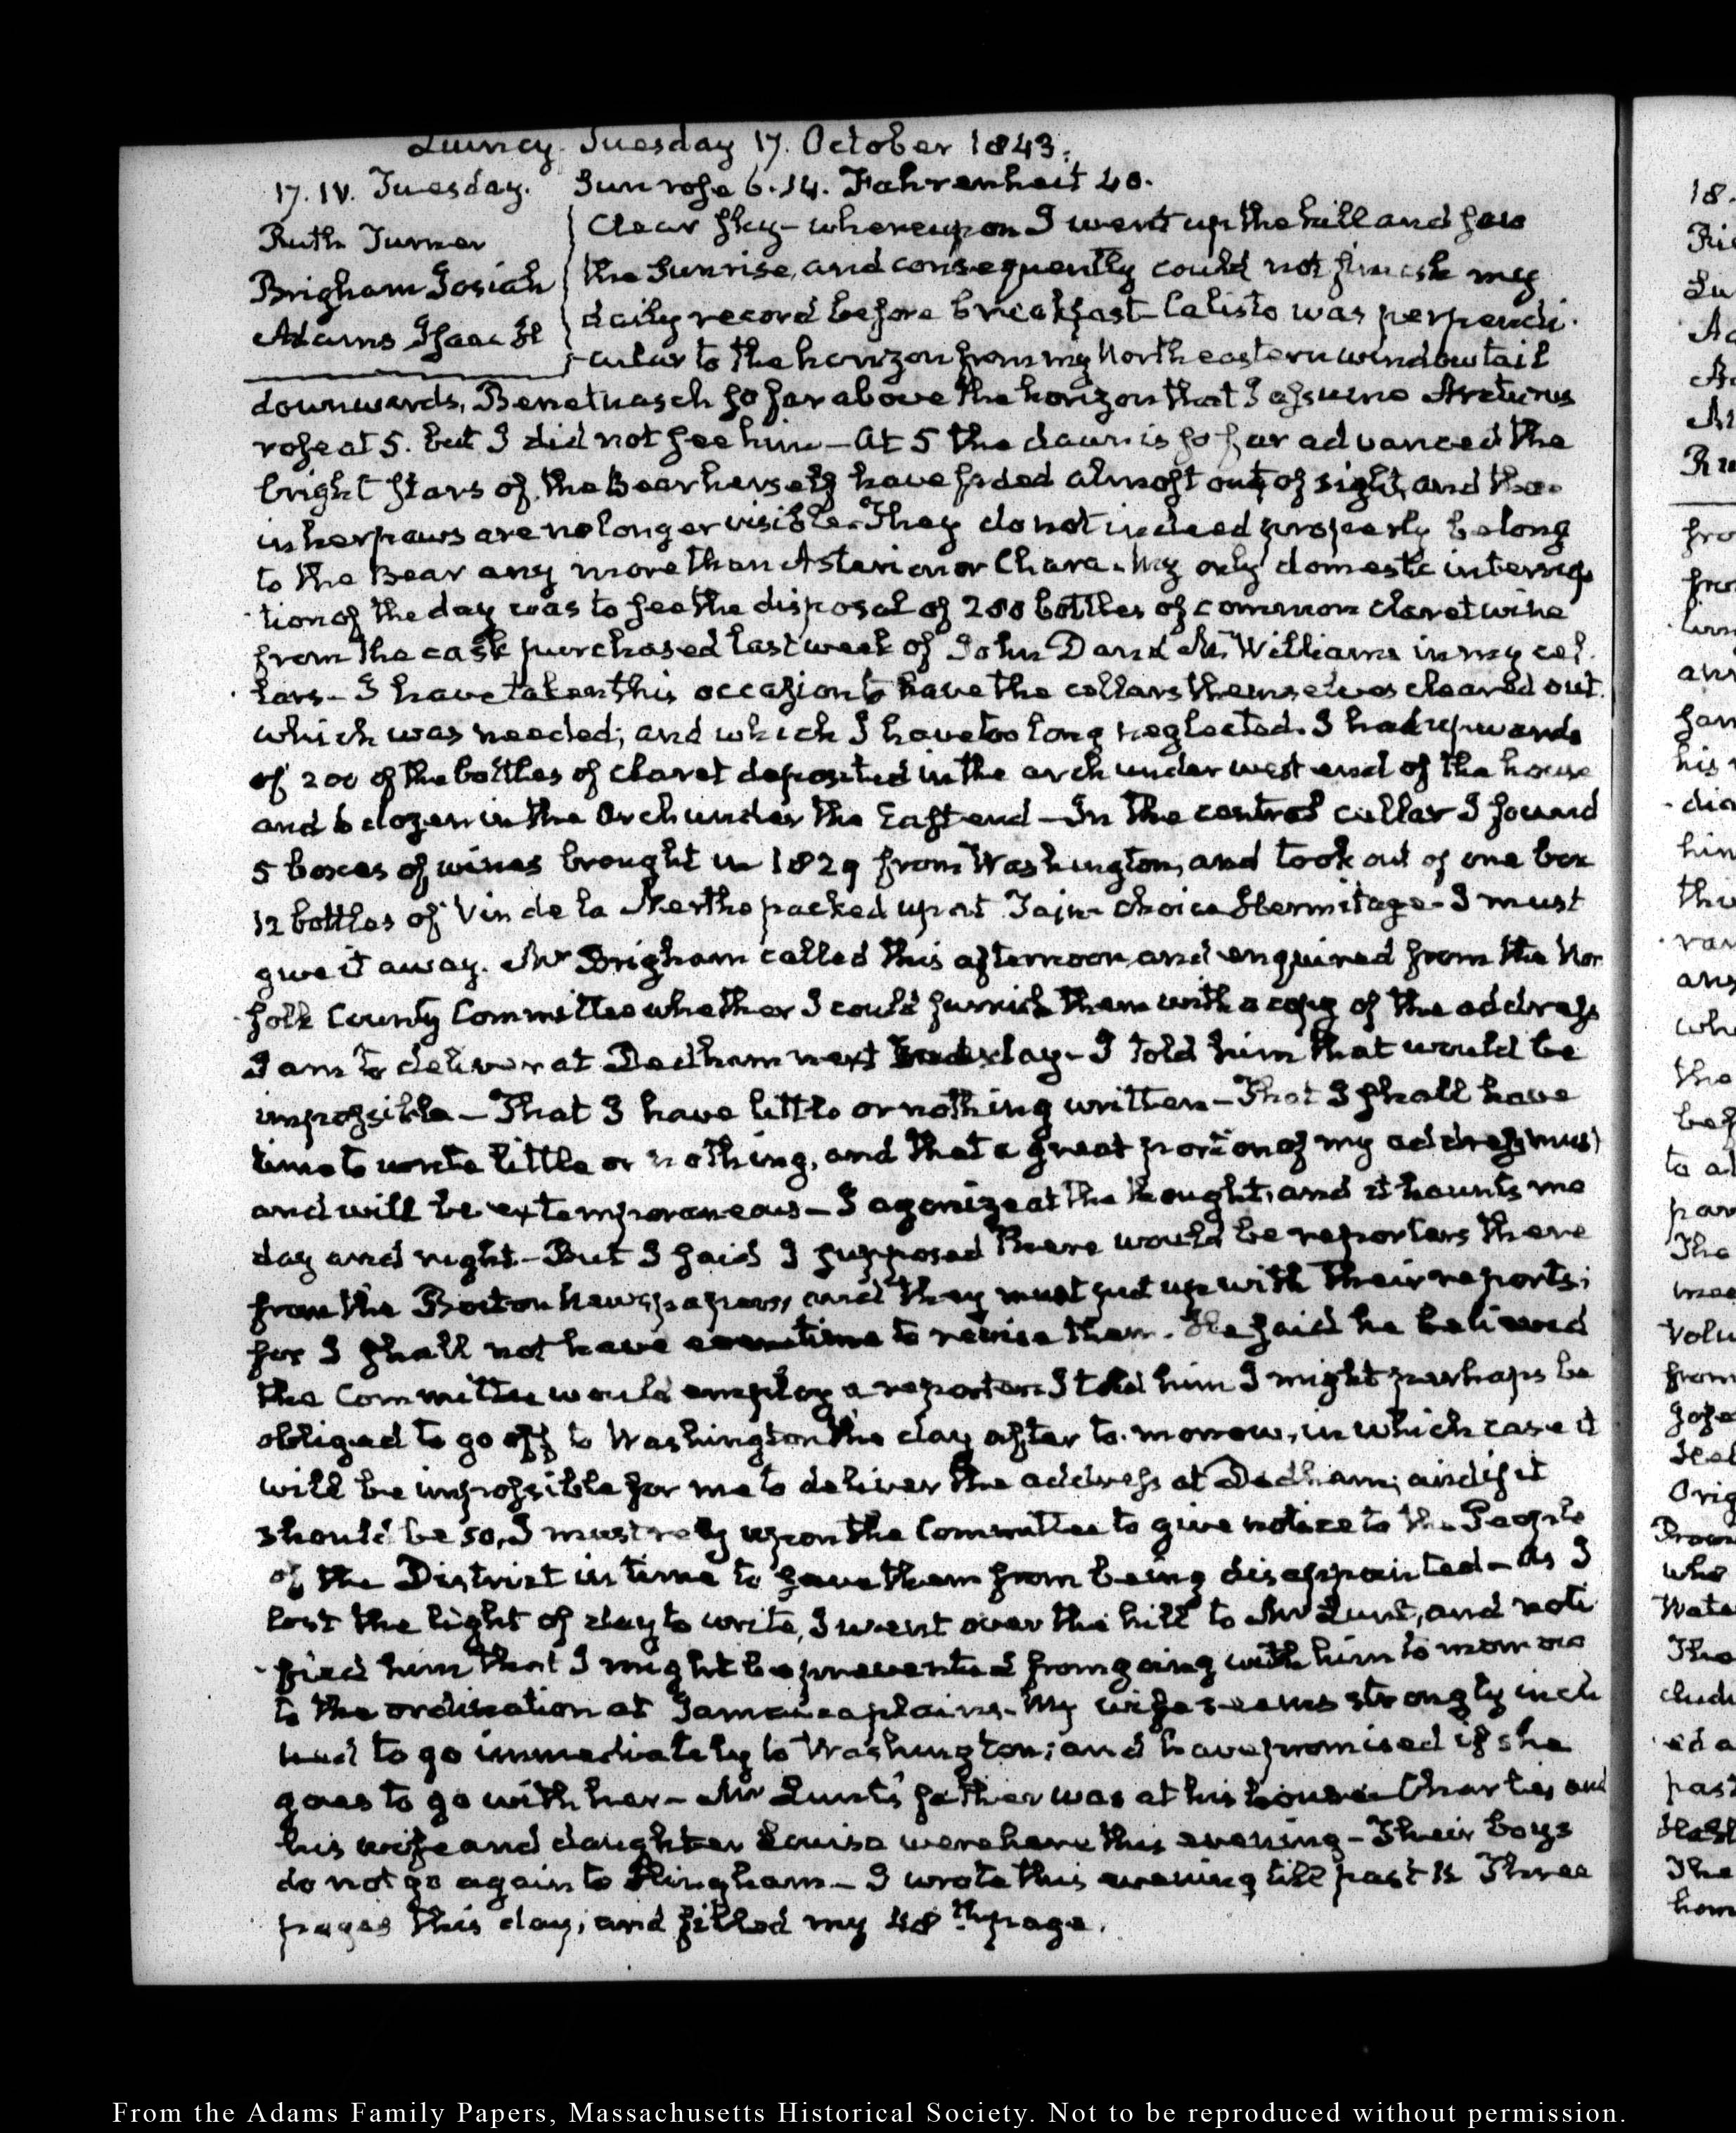 Quincy Tuesday 17. October 1843.
17. IV. Tuesday. Sun rose 6.14. Fahrenheit 40.
Ruth Turner
Brigham Josiah
Adams Isaac H
Clear sky – whereupon I went up the hill and saw
the Sunrise, and consequently could not finish my
daily record before breakfast – Calisto was perpendi-
-cular to the horizon from my North eastern window tail
downwards, Benetnasch so far above the horizon that I assume Arcturus
rose at 5. but I did not see him – At 5 the dawn is so far advanced the
bright stars of the Bear herself have faded almost out of sight, and those
in her paws are no longer visible. They do not indeed properly belong
to the Bear any more than Asterion or Chara. My only domestic interrup
-tion of the day was to see the disposal of 280 bottles of common claret wine
from the cask purchased last week of John D and M. Williams in my cel-
-lars – I have taken this occasion to have the cellars themselves cleared out.
which was needed; and which I have too long neglected. I had upwards
of 200 of the bottles of claret deposited in the arch under west end of the house
and 6 dozen in the Arch under the East end – In the central cellar I found
5 boxes of wines brought in 1829 from Washington, and took out of one box
12 bottles of Vin de la Nerthe packed up at Tain choice Hermitage – I must
give it away. Mr Brigham called this afternoon, and enquired from the Nor
-folk County Committee whether I could furnish them with a copy of the address
I am to deliver at Dedham next day – I told him that would be
impossible – That I have little or nothing written – That I shall have
time to write little or nothing, and that a great portion of my address must
and will be extemporaneous – I agonize at the thought, and it haunts me
day and night – But I said I supposed there would be reporters there
from the Boston newspapers, and they must put up with their reports;
for I shall not have even time to revise them. He said he believed
the Committee would employ a reporter. I told him I might perhaps be
obliged to go off to Washington the day after to-morrow, in which case it
will be impossible for me to deliver the address at Dedham; and if it
should be so, I must rely upon the Committee to give notice to the People
of the District in time to save them from being disappointed – As I
lost the light of day to write, I went over the hill to Mr Lunt, and noti
-fied him that I might be prevented from going with him to morrow
to the ordination at Jamaica plains. My wife seems strongly incli
ned to go immediately to Washington; and have promised if she
goes to go with her – Mr Lunt's father was at his house – Charles and
his wife and daughter Louisa were here this evening – Their boys
do not go again to Hingham – I wrote this evening till past Three
pages this day; and filled my 48th page.
18.